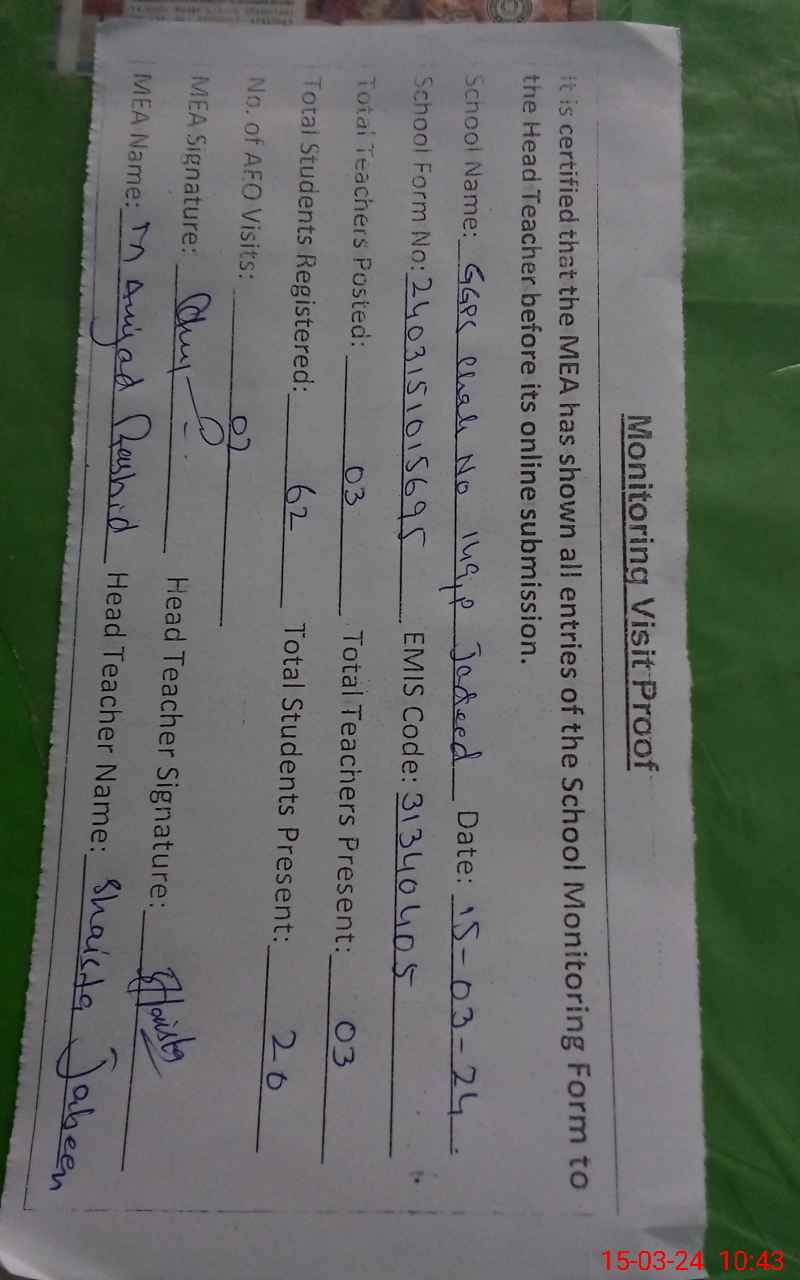 Monitoring Visit Proof
It is certified that the MEA has shown all entries of the School Monitoring Form to
the Head Teacher before its online submission.
School Name: GGPS Chak No 149/P Jadeed Date: 15-03-24
School Form No: 2403151015695 EMIS Code: 31340405
Total Teachers Posted: 03 Total Teachers Present: 03
Total Students Registered: 62 Total Students Present: 20
No. of AEO Visits: 02
MEA Signature: Head Teacher Signature: Shaista
MEA Name: M Amjad Rashid Head Teacher Name: Shaista Jabeen
15-03-24 10:43